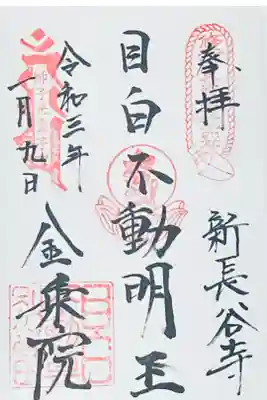 奉拝
新長谷寺
目白不動明王
令和三年
一月九日
金乗院